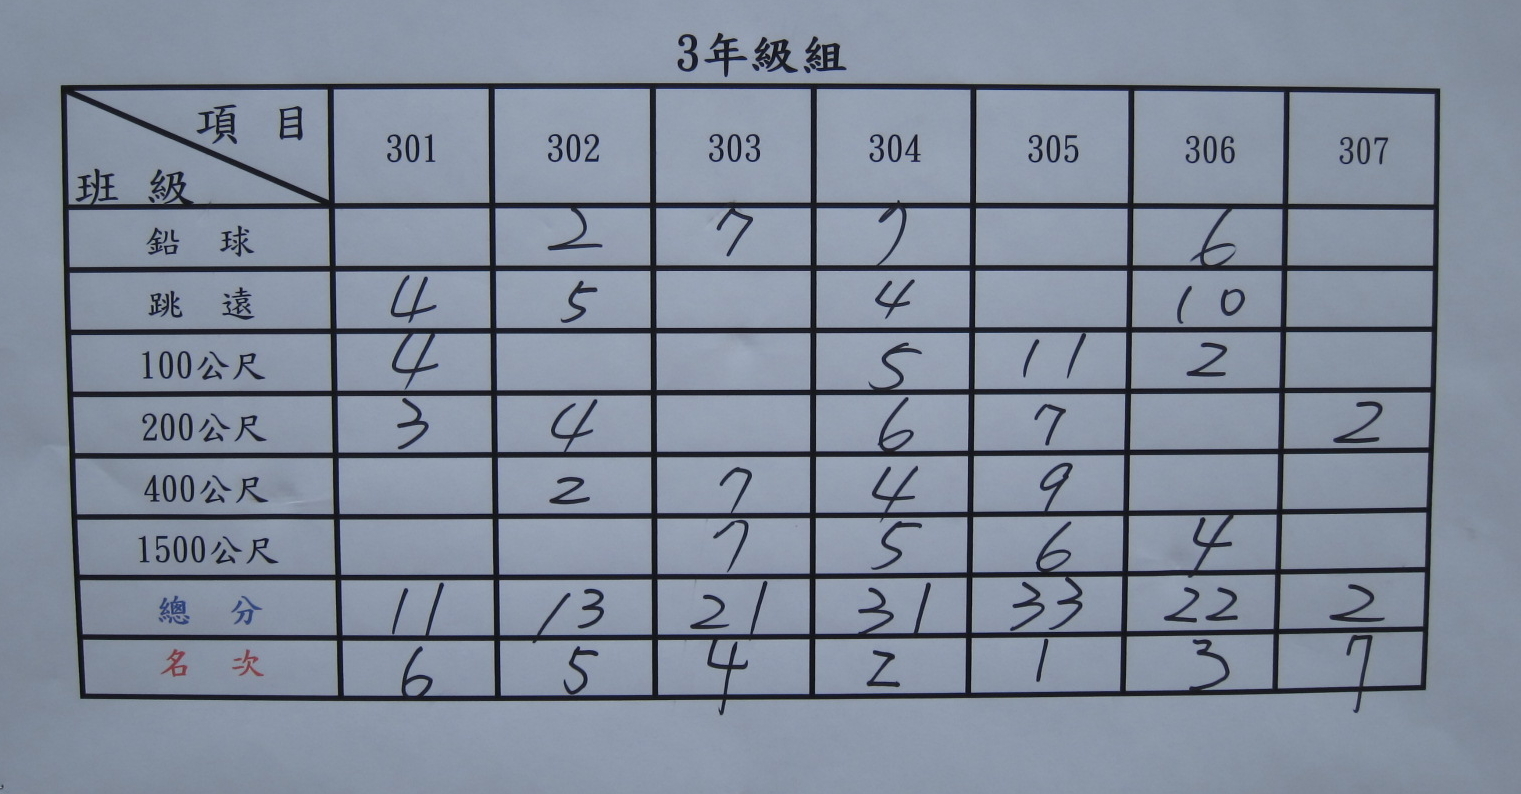 3年級組
項 目 301 302 303 304 305 306 307
班 級
鉛 球 2 7 7 6
跳 遠 4 5 4 10
100公尺 4 5 11 2
200公尺 3 4 6 7 2
400公尺 2 7 4 9
1500公尺 7 5 6 4
總 分 11 13 21 31 33 22 2
名 次 6 5 4 2 1 3 7